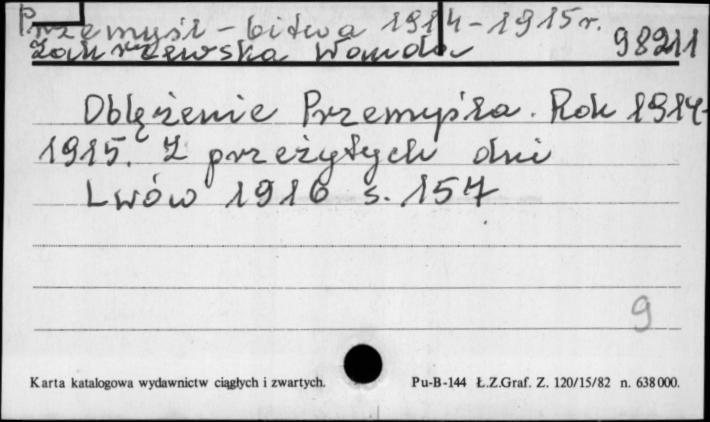 Przemyśl - bitwa 1914-1915 r.
Zakrzewska Wanda 98211
Oblężenie Przemyśla. Rok 1914-
1915. Z przeżytych dni
Lwów 1916 s. 157
9
Karta katalogowa wydawnictw ciągłych i zwartych. Pu-B-144 Ł.Z.Graf. Z. 120/15/82 n. 638000.